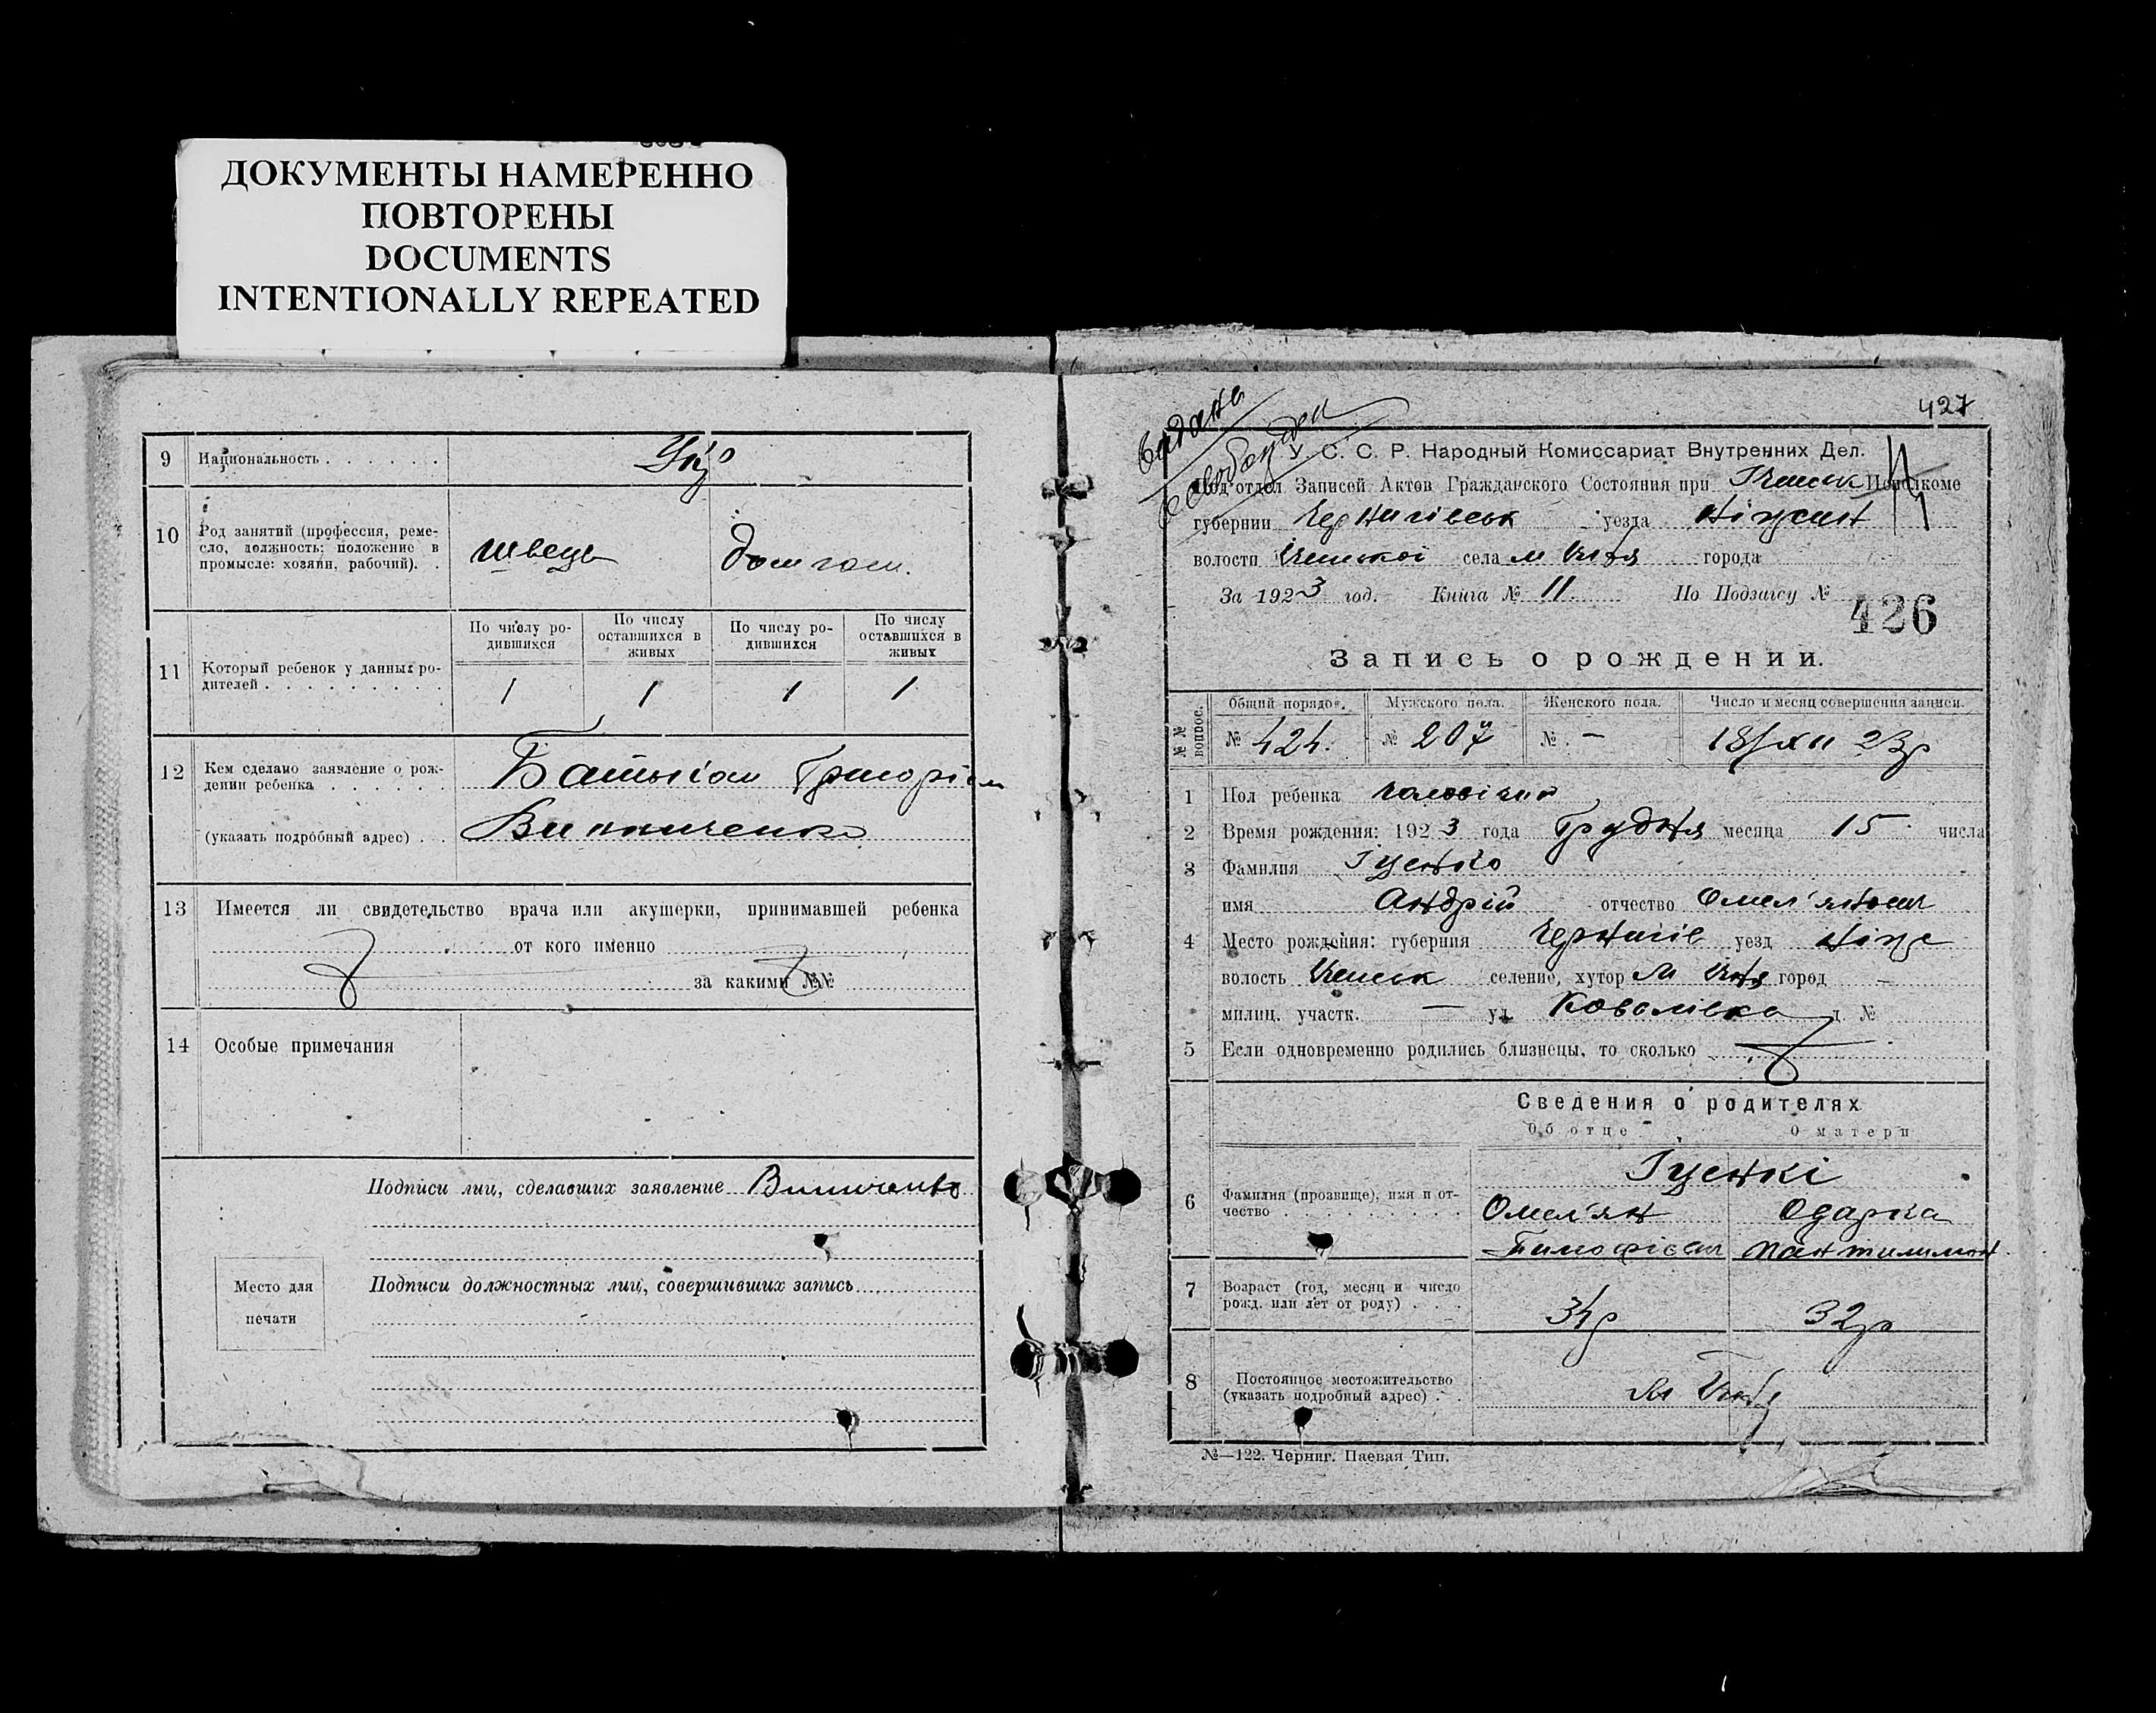 ДОКУМЕНТЫ НАМЕРЕННО
ПОВТОРЕНЫ
DOCUMENTS
INTENTIONALLY REPEATED
9 Национальность Укр
10 Род занятий (профессия, реме-
сло, должность: положение в
промысле: хозяин, рабочий).
швець дом госп.
11 Который ребенок у данных ро-
дителей
По числу ро-
дившихся
По числу
оставшихся в
живых
По числу ро-
дившихся
По числу
оставшихся в
живых
1 1 1 1
12 Кем сделано заявление о рож-
дении ребенка
Батьком Григорієм
(указать подробный адрес)
Винниченко
13 Имеется ли свидетельство врача или акушерки, принимавшей ребенка
от кого именно
за какими №№
14 Особые примечания
Подписи лиц, сделавших заявление Винниченко
Место для
печати
Подписи должностных лиц, совершивших запись
427
видань
У. С. С. Р. Народный Комиссариат Внутренних Дел.
Под'отдел Записей Актов Гражданского Состояния при Ічнськ Исполкоме
губернии Чернигівськ уезда Ніженск
волости Ічнської села м Ічня города
За 1923 год. Книга № 11. По Подзагсу №
426
Запись о рождении.
№ № вопрос.
Общий порядок. Мужского пола. Женского пола. Число и месяц совершения записи.
№ 424. № 207 № - 18/XII 23р
1 Пол ребенка чоловічий
2 Время рождения: 1923 года Грудня месяца 15 числа
3 Фамилия Гуенко
имя Андрій отчество Омел'янович
4 Место рождения: губерния Чернигів уезд Ніже
волость Ічнськ селение, хутор м Ічня город —
милиц. участк. — ул. Ковалівка д №
5 Если одновременно родились близнецы, то сколько
Сведения о родителях
Об отце О матери
6 Фамилия (прозвище), имя и от-
чество
Гуенкі
Омел'ян Одарка
Тимофієвич Пантилимон
7 Возраст (год, месяц и число
рожд. или лет от роду)
34р 32р
8 Постоянное местожительство
(указать подробный адрес)
м Ічня
№—122. Черниг. Паевая Тип.